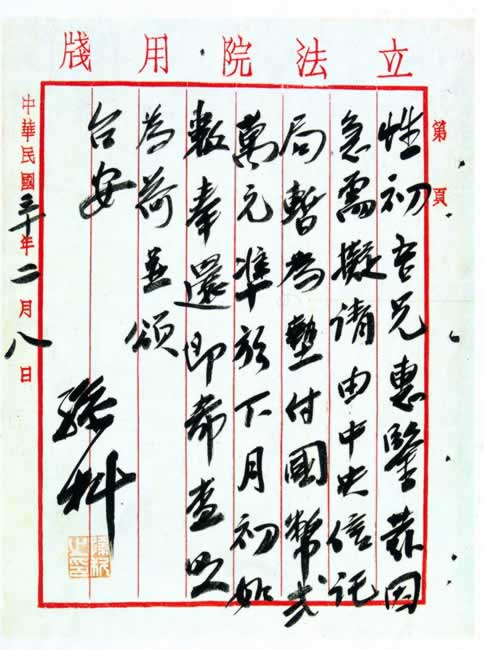 立法院用牋
第 頁
性初吾兄惠鑒茲因
急需擬請由中央信託
局暫為墊付國幣弍
萬元準於下月初如
數奉還即希查照
為荷並頌
台安
孫科
中華民國三十年二月八日